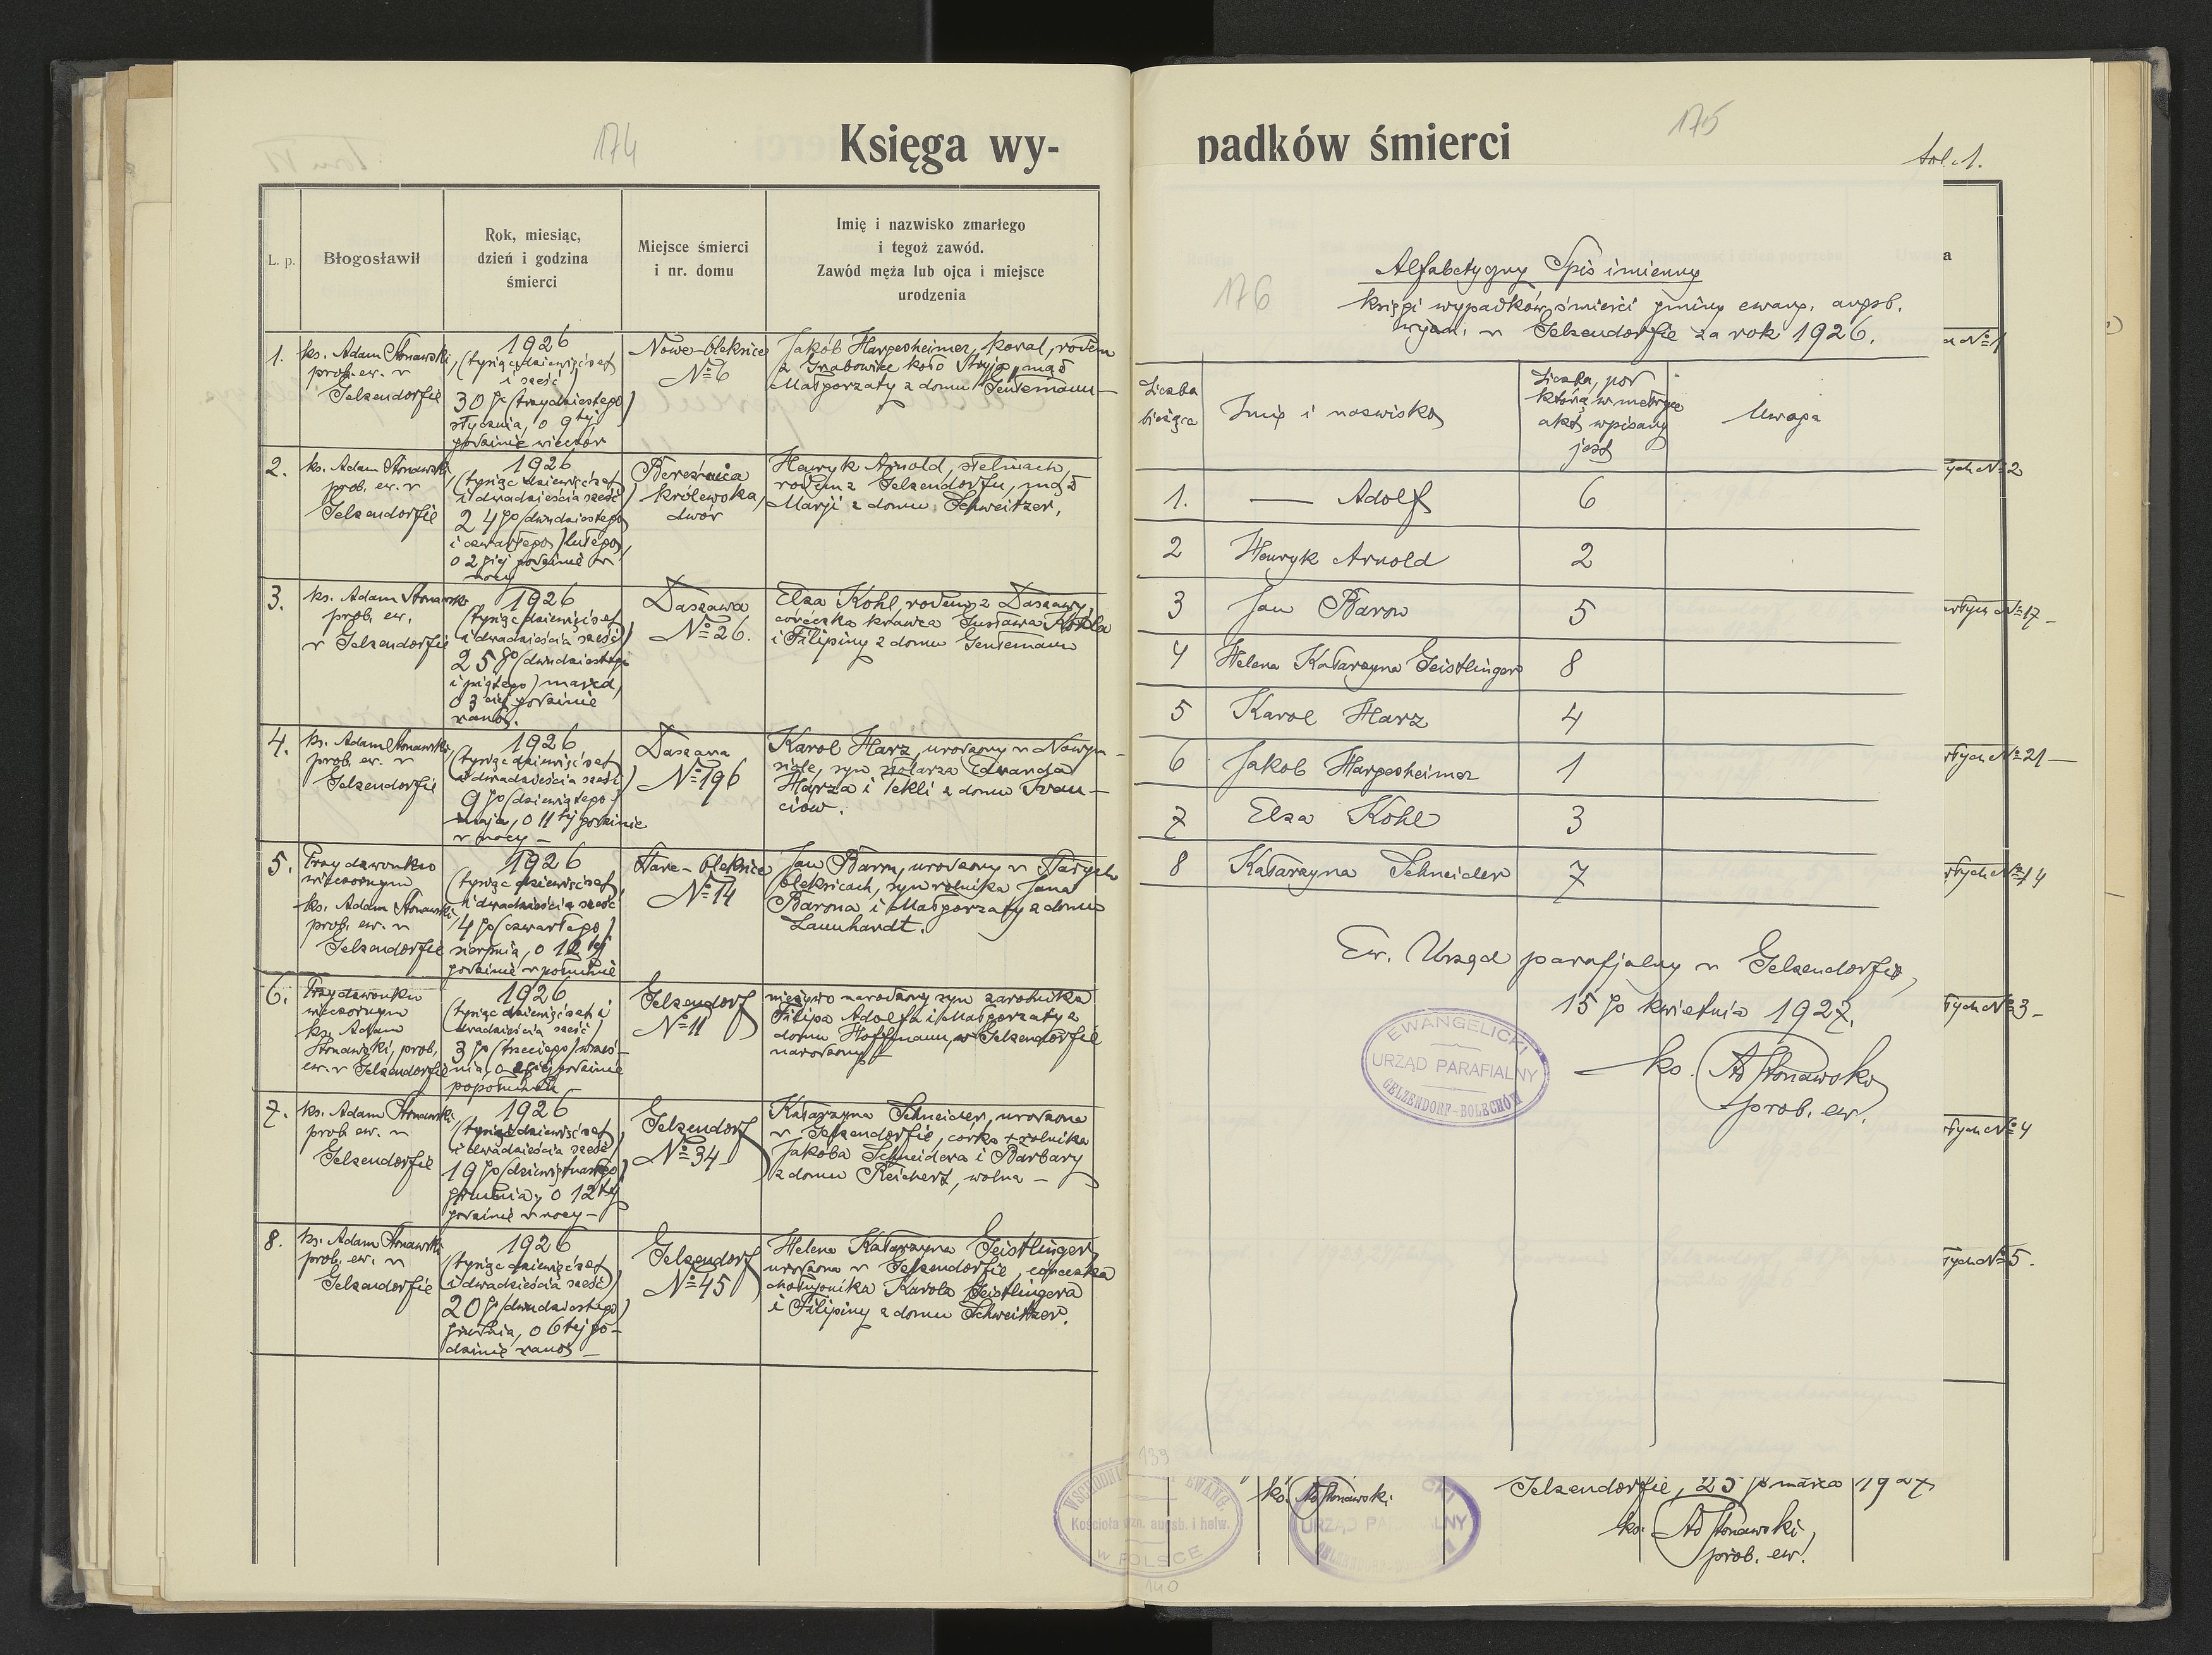 174
Księga wy-
L. p.
Błogosławił
Rok, miesiąc,
dzień i godzina
śmierci
Miejsce śmierci
i nr. domu
Imię i nazwisko zmarłego
i tegoż zawód.
Zawód męża lub ojca i miejsce
urodzenia
1.
ks. Adam Stonawski,
prob. ew. w
Gelsendorfie
1926
(tysiąc dziewięćset
i sześć)
30go (trzydziestego)
stycznia, o 9tej
godzinie wieczór
Nowe-Oleksice
№ 6
Jakób Hargesheimer, kowal, rodem
z Grabowiec koło Stryja, mąż
Małgorzaty z domu Gentemann
2.
ks. Adam Stonawski,
prob. ew. w
Gelsendorfie
1926
(tysiąc dziewięćset
i dwadzieścia sześć)
24go (dwudziestego
i czwartego) lutego,
o 2giej godzinie w
nocy
Bereźnica
królewska,
dwór
Henryk Arnold, stelmach,
rodem z Gelsendorfu, mąż
Marji z domu Schweitzer,
3.
ks. Adam Stonawski
prob. ew.
w Gelsendorfie
1926
(tysiąc dziewięćset
i dwadzieścia sześć)
25go (dwudziestego
i piątego) marca,
o 3ciej godzinie
rano.
Daszawa
№ 26.
Elza Kohl, rodem z Daszawy,
córeczka krawca Gustawa Kohla
i Filipiny z domu Gentemann
4.
ks. Adam Stonawski,
prob. ew. w
Gelsendorfie
1926
(tysiąc dziewięćset
i dwadzieścia sześć)
9go (dziewiątego)
maja, o 11tej godzinie
w nocy –
Daszawa
№ 196
Karol Harz, urodzony w Nowym-
siole, syn stolarza Edwarda
Harza i Tekli z domu Iwan-
ciow.
5.
Przy dzwonku
wieczornym
ks. Adam Stonawski,
prob. ew. w
Gelsendorfie
1926
(tysiąc dziewięćset
i dwadzieścia sześć)
4go (czwartego)
sierpnia, o 12tej
godzinie w południe
Stare-Oleksice
№ 14
Jan Baron, urodzony w Starych
Oleksicach, syn rolnika Jana
Barona i Małgorzaty z domu
Launhardt.
6.
Przy dzwonku
wieczornym
ks. Adam
Stonawski, prob.
ew. w Gelsendorfie
1926
(tysiąc dziewięćset i
dwadzieścia sześć)
3go (trzeciego) wrześ-
nia, o 2giej godzinie
popołudniu
Gelsendorf
№ 11
nieżywo narodzony syn zarobnika
Filipa Adolfa i Małgorzaty z
domu Hoffmann, w Gelsendorfie
narodzony –
7.
ks. Adam Stonawski,
prob. ew. w
Gelsendorfie
1926
(tysiąc dziewięćset
i dwadzieścia sześć)
19go (dziewiętnastego)
grudnia, o 12tej
godzinie w nocy –
Gelsendorf
№ 34
Katarzyna Schneider, urodzona
w Gelsendorfie, córka + rolnika
Jakóba Schneidera i Barbary
z domu Reichert, wolna –
8.
ks. Adam Stonawski,
prob. ew. w
Gelsendorfie
1926
(tysiąc dziewięćset
i dwadzieścia sześć)
20go (dwudziestego)
grudnia, o 6tej go-
dzinie rano –
Gelsendorf
№ 45
Helena Katarzyna Geistlinger,
urodzona w Gelsendorfie, córeczka
Karola Geistlingera
i Filipiny z domu Schweitzer.
padków śmierci
175
fol. 1.
176
Alfabetyczny Spis imienny
księgi wypadków śmierci gminy ewang. augsb.
wyzn. w Gelsendorfie za rok 1926.
Liczba
bieżąca
Imię i nazwisko
Liczba, pod
którą w metryce
akt wpisany
jest
Uwaga
1. — Adolf 6
2 Henryk Arnold 2
3 Jan Baron 5
4 Helena Katarzyna Geistlinger 8
5 Karol Harz 4
6 Jakob Hargesheimer 1
7 Elza Kohl 3
8 Katarzyna Schneider 7
Ew. Urząd parafjalny w Gelsendorfie,
15go kwietnia 1927.
ks. Ad Stonawski
prob. ew.
EWANGELICKI
URZĄD PARAFIALNY
GELZENDORF-BOLECHÓW
a
№ 1
tych № 2
tych № 17 –
tych № 21 –
tych № 14
tych № 3 –
tych № 4
tych № 5.
139
WSCHODNI EWANG.
Kościoła wzn. augsb. i helw.
w POLSCE
140
ks. Ad Stonawski
URZĄD PARAFIALNY
Gelsendorfie, 25go marca 1927
ks. Ad Stonawski,
prob. ew.